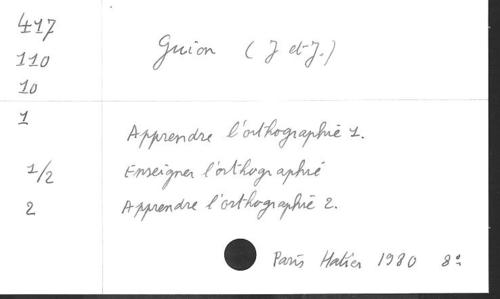 417
110
10
Guion (J et J.)
1 Apprendre l'orthographie 1.
1/2 Enseigner l'orthographié
2 Apprendre l'orthographie 2.
Paris Hatier 1980 8º